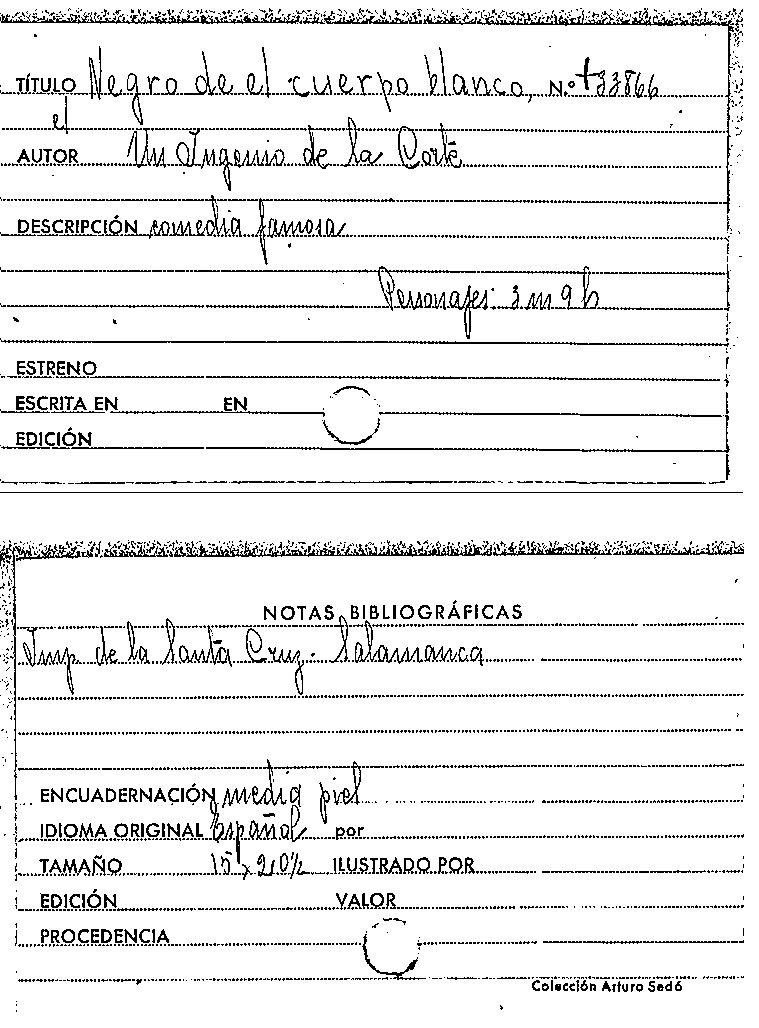 TÍTULO Negro de el cuerpo blanco, N.º +33866
el
AUTOR Un Ingenio de la Corte
DESCRIPCIÓN comedia famosa
Personajes: 3 m 9 h
ESTRENO
ESCRITA EN EN
EDICIÓN
NOTAS BIBLIOGRÁFICAS
Imp de la Santa Cruz. Salamanca
ENCUADERNACIÓN media piel
IDIOMA ORIGINAL Español por
TAMAÑO 15 x 20½ ILUSTRADO POR
EDICIÓN VALOR
PROCEDENCIA
Colección Arturo Sedó